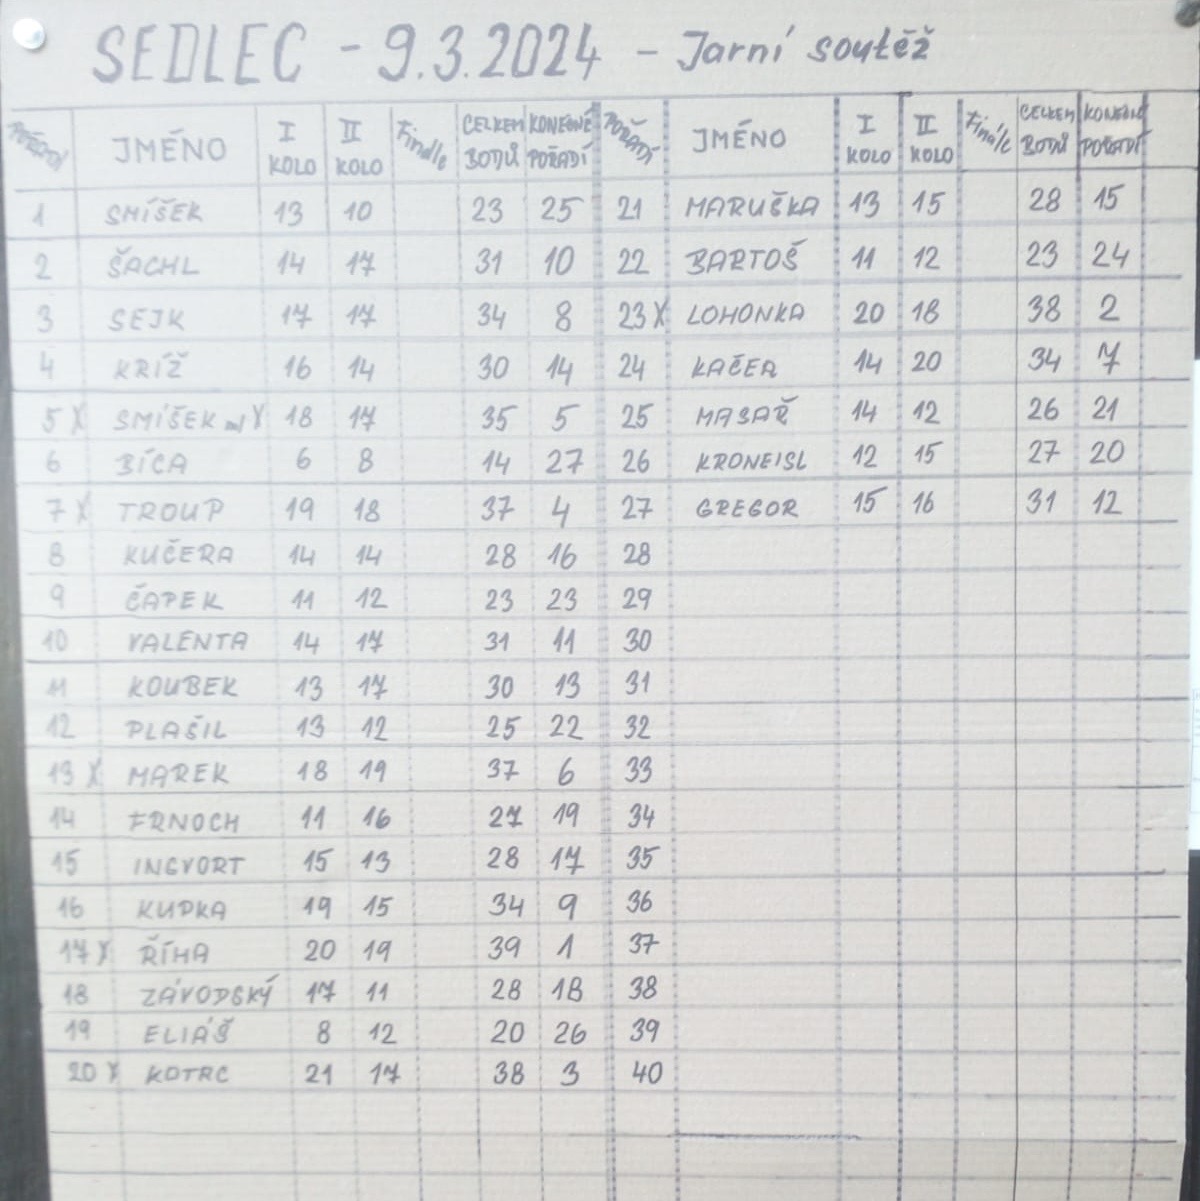 SEDLEC - 9.3.2024 - Jarní soutěž
POŘADÍ JMÉNO I KOLO II KOLO Finále CELKEM BODŮ KONEČNÉ POŘADÍ POŘADÍ JMÉNO I KOLO II KOLO Finále CELKEM BODŮ KONEČNÉ POŘADÍ
1 SMÍŠEK 13 10 23 25 21 MARUŠKA 13 15 28 15
2 ŠACHL 14 17 31 10 22 BARTOŠ 11 12 23 24
3 SEJK 17 17 34 8 23 X LOHONKA 20 18 38 2
4 KŘÍŽ 16 14 30 14 24 KAČER 14 20 34 7
5 X SMÍŠEK ml X 18 17 35 5 25 MASAŘ 14 12 26 21
6 BÍCA 6 8 14 27 26 KRONEISL 12 15 27 20
7 X TROUP 19 18 37 4 27 GREGOR 15 16 31 12
8 KUČERA 14 14 28 16 28
9 ČAPEK 11 12 23 23 29
10 VALENTA 14 17 31 11 30
11 KOUBEK 13 17 30 13 31
12 PLAŠIL 13 12 25 22 32
13 X MAREK 18 19 37 6 33
14 FRNOCH 11 16 27 19 34
15 INGVORT 15 13 28 17 35
16 KUPKA 19 15 34 9 36
17 X ŘÍHA 20 19 39 1 37
18 ZÁVODSKÝ 17 11 28 18 38
19 ELIÁŠ 8 12 20 26 39
20 X KOTRC 21 17 38 3 40